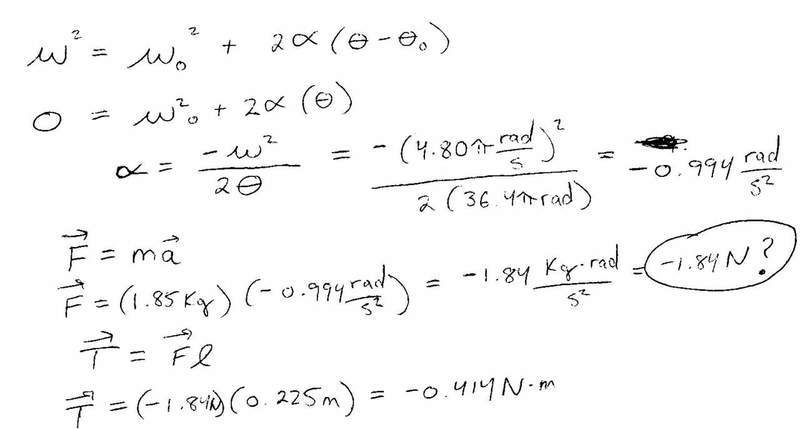 ω² = ω₀² + 2α(θ-θ₀)
0 = ω₀² + 2α(θ)
α = -ω²/2θ = -(4.80π rad/s)²/2(36.4π rad) = -0.994 rad/s²
F⃗ = ma⃗
F⃗ = (1.85Kg)(-0.994 rad/s²) = -1.84 Kg·rad/s² = -1.84N?
T⃗ = F⃗l
T⃗ = (-1.84N)(0.225m) = -0.414N·m